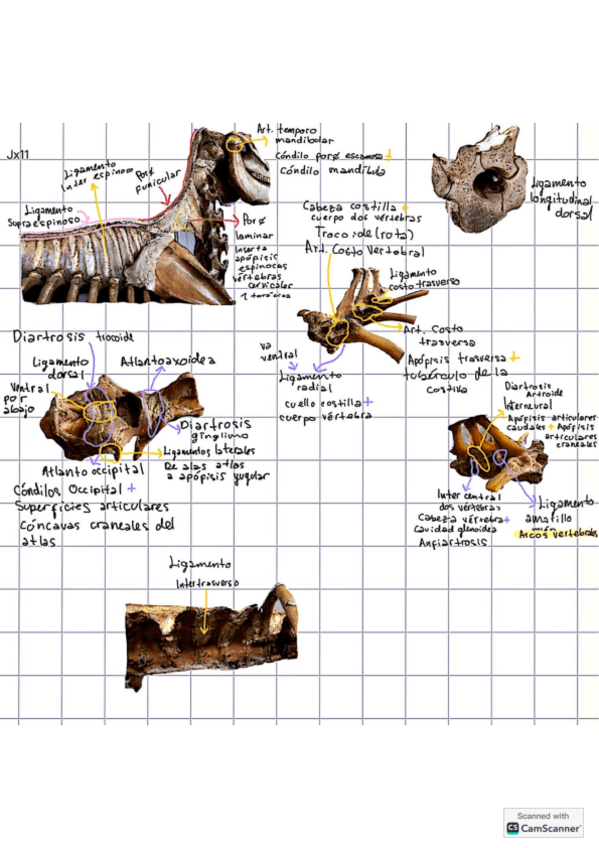 Jx11
Ligamento
Inter espinoso
Porø
Funicular
Ligamento
Supraespinoso
Porø
laminar
Inserta
apópisis
espinocas
vértebras
cervicales
1 torácica
Art. temporo
mandibular
Cóndilo porø escamosa +
Cóndilo mandíbula
Cabeza costilla +
cuerpo dos vértebras
Trocoide (rota)
Art. Costo Vertebral
Ligamento
longitudinal
dorsal
Ligamento
costo trasverso
Art. Costo
trasversa
Apópisis trasversa +
tubérculo de la
costilla
va
ventral
Ligamento
radial
cuello costilla +
cuerpo vértebra
Diartrosis trocoide
Ligamento
dorsal
Atlantoaxoidea
Ventral
por
abajo
Diartrosis
ginglimo
Ligamentos laterales
De alas atlas
a apópisis yugular
Atlanto occipital
Cóndilos Occipital +
Superficies articulares
Cóncavas craneales del
atlas
Diartrosis
Artroide
Interneural
Apópisis articulares
caudales + Apópisis
articulares
craneales
Inter central
dos vértebras
Cabeza vértebra +
Cavidad glenoidea
Anfiartrosis
Ligamento
amarillo
Arcos vertebrales
Ligamento
Intertrasverso
Scanned with
CS CamScanner